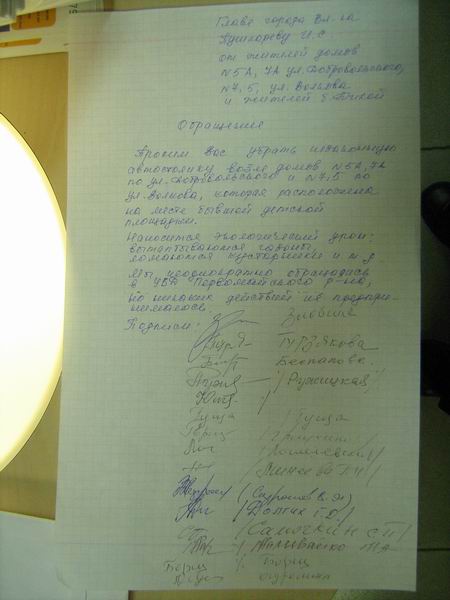 Главе города Вл-ка
Пушкареву И.С
от жителей домов
N5А, 7А ул. Добровольского,
N7, 5, ул. Волкова
и жителей б. Тихой
Обращение
Просим Вас убрать незаконную
автостоянку возле домов N5А, 7А
по ул. Добровольского и N7, 5 по
ул. Волкова, которая расположена
на месте бывшей детской
площадки.
Наносится экологический урон:
вытаптываются газоны,
ломаются кустарники и т.д.
Мы неоднократно обращались
в УВД Первомайского р-на,
но никаких действий не предпри-
нималось.
Подписи:
Беспалова.
/Ружицкая/
Гуща Гуща
(Сафронов В.А)
/Долгих Г.Д./
/Самочкин С П/
Борщ / Борщ